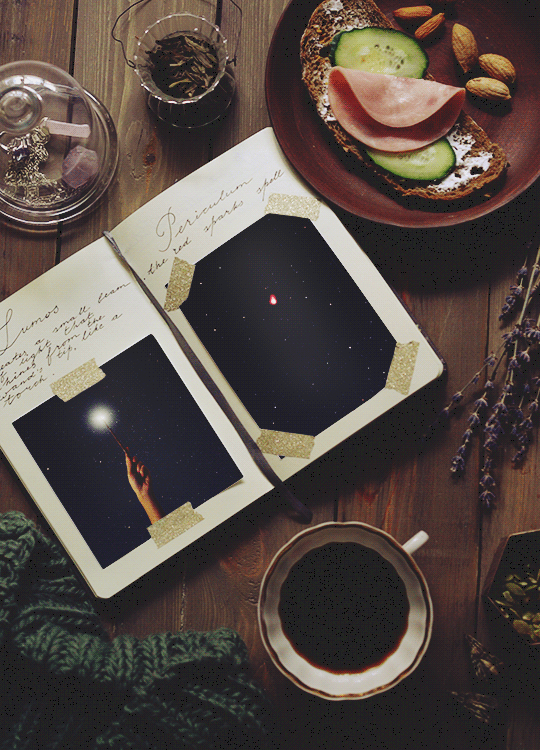 Lumos
a small beam
light that
shines from the
wand's tip, like a
touch
Periculum
the red sparks spell